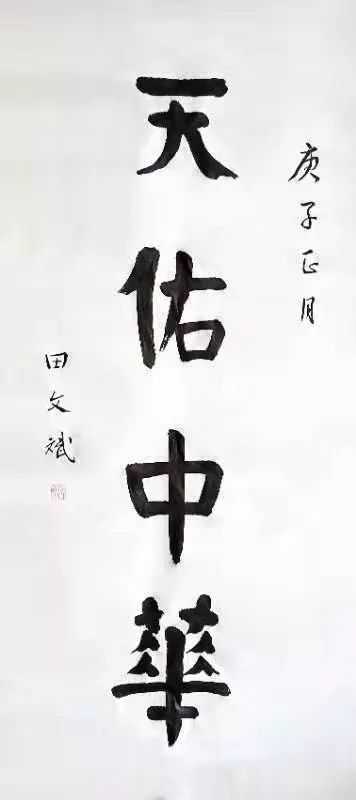 庚子正月
天佑中華
田文斌